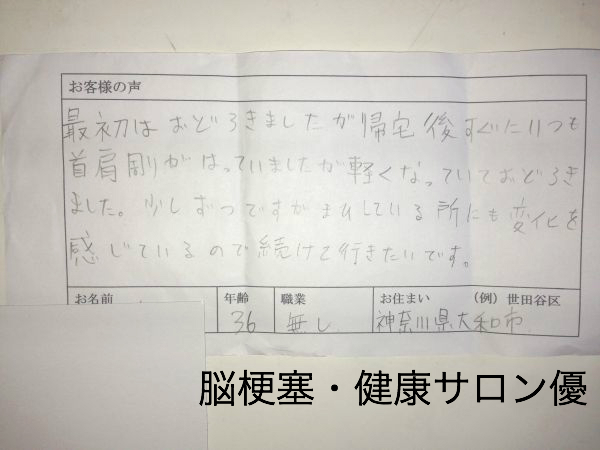 お客様の声
最初はおどろきましたが帰宅後すぐにいつも
首肩剛がはっていましたが軽くなっていておどろき
ました。少しずつですがまひしている所にも変化を
感じているので続けて行きたいです。
お名前 年齢 職業 お住まい (例)世田谷区
36 無し 神奈川県大和市
脳梗塞・健康サロン優